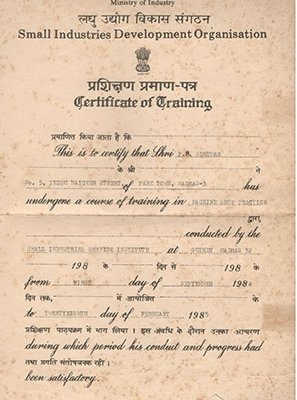 Ministry of Industry
लघु उद्योग विकास संगठन
Small Industries Development Organisation
प्रशिक्षण प्रमाण-पत्र
Certificate of Training
प्रमाणित किया जाता है कि
This is to certify that Shri P.S. SUKUMAR
के श्री ने
No. 5, PEDDU NAICKEN STREET of PARK TOWN, MADRAS-3 has
undergone a course of training in MACHINE SHOP PRACTICE
द्वारा,
conducted by the
SMALL INDUSTRIES SERVICE INSTITUTE at GUINDY MADRAS 32
198 के दिन से 198 के
from FIRST day of SEPTEMBER 1984
दिन तक, में आयोजित के
to TWENTYEIGHTH day of FEBRUARY 1985
प्रशिक्षण पाठ्यक्रम में भाग लिया। इस अवधि के दौरान उनका आचरण
during which period his conduct and progress had
तथा प्रगति संतोषजनक रही।
been satisfactory.